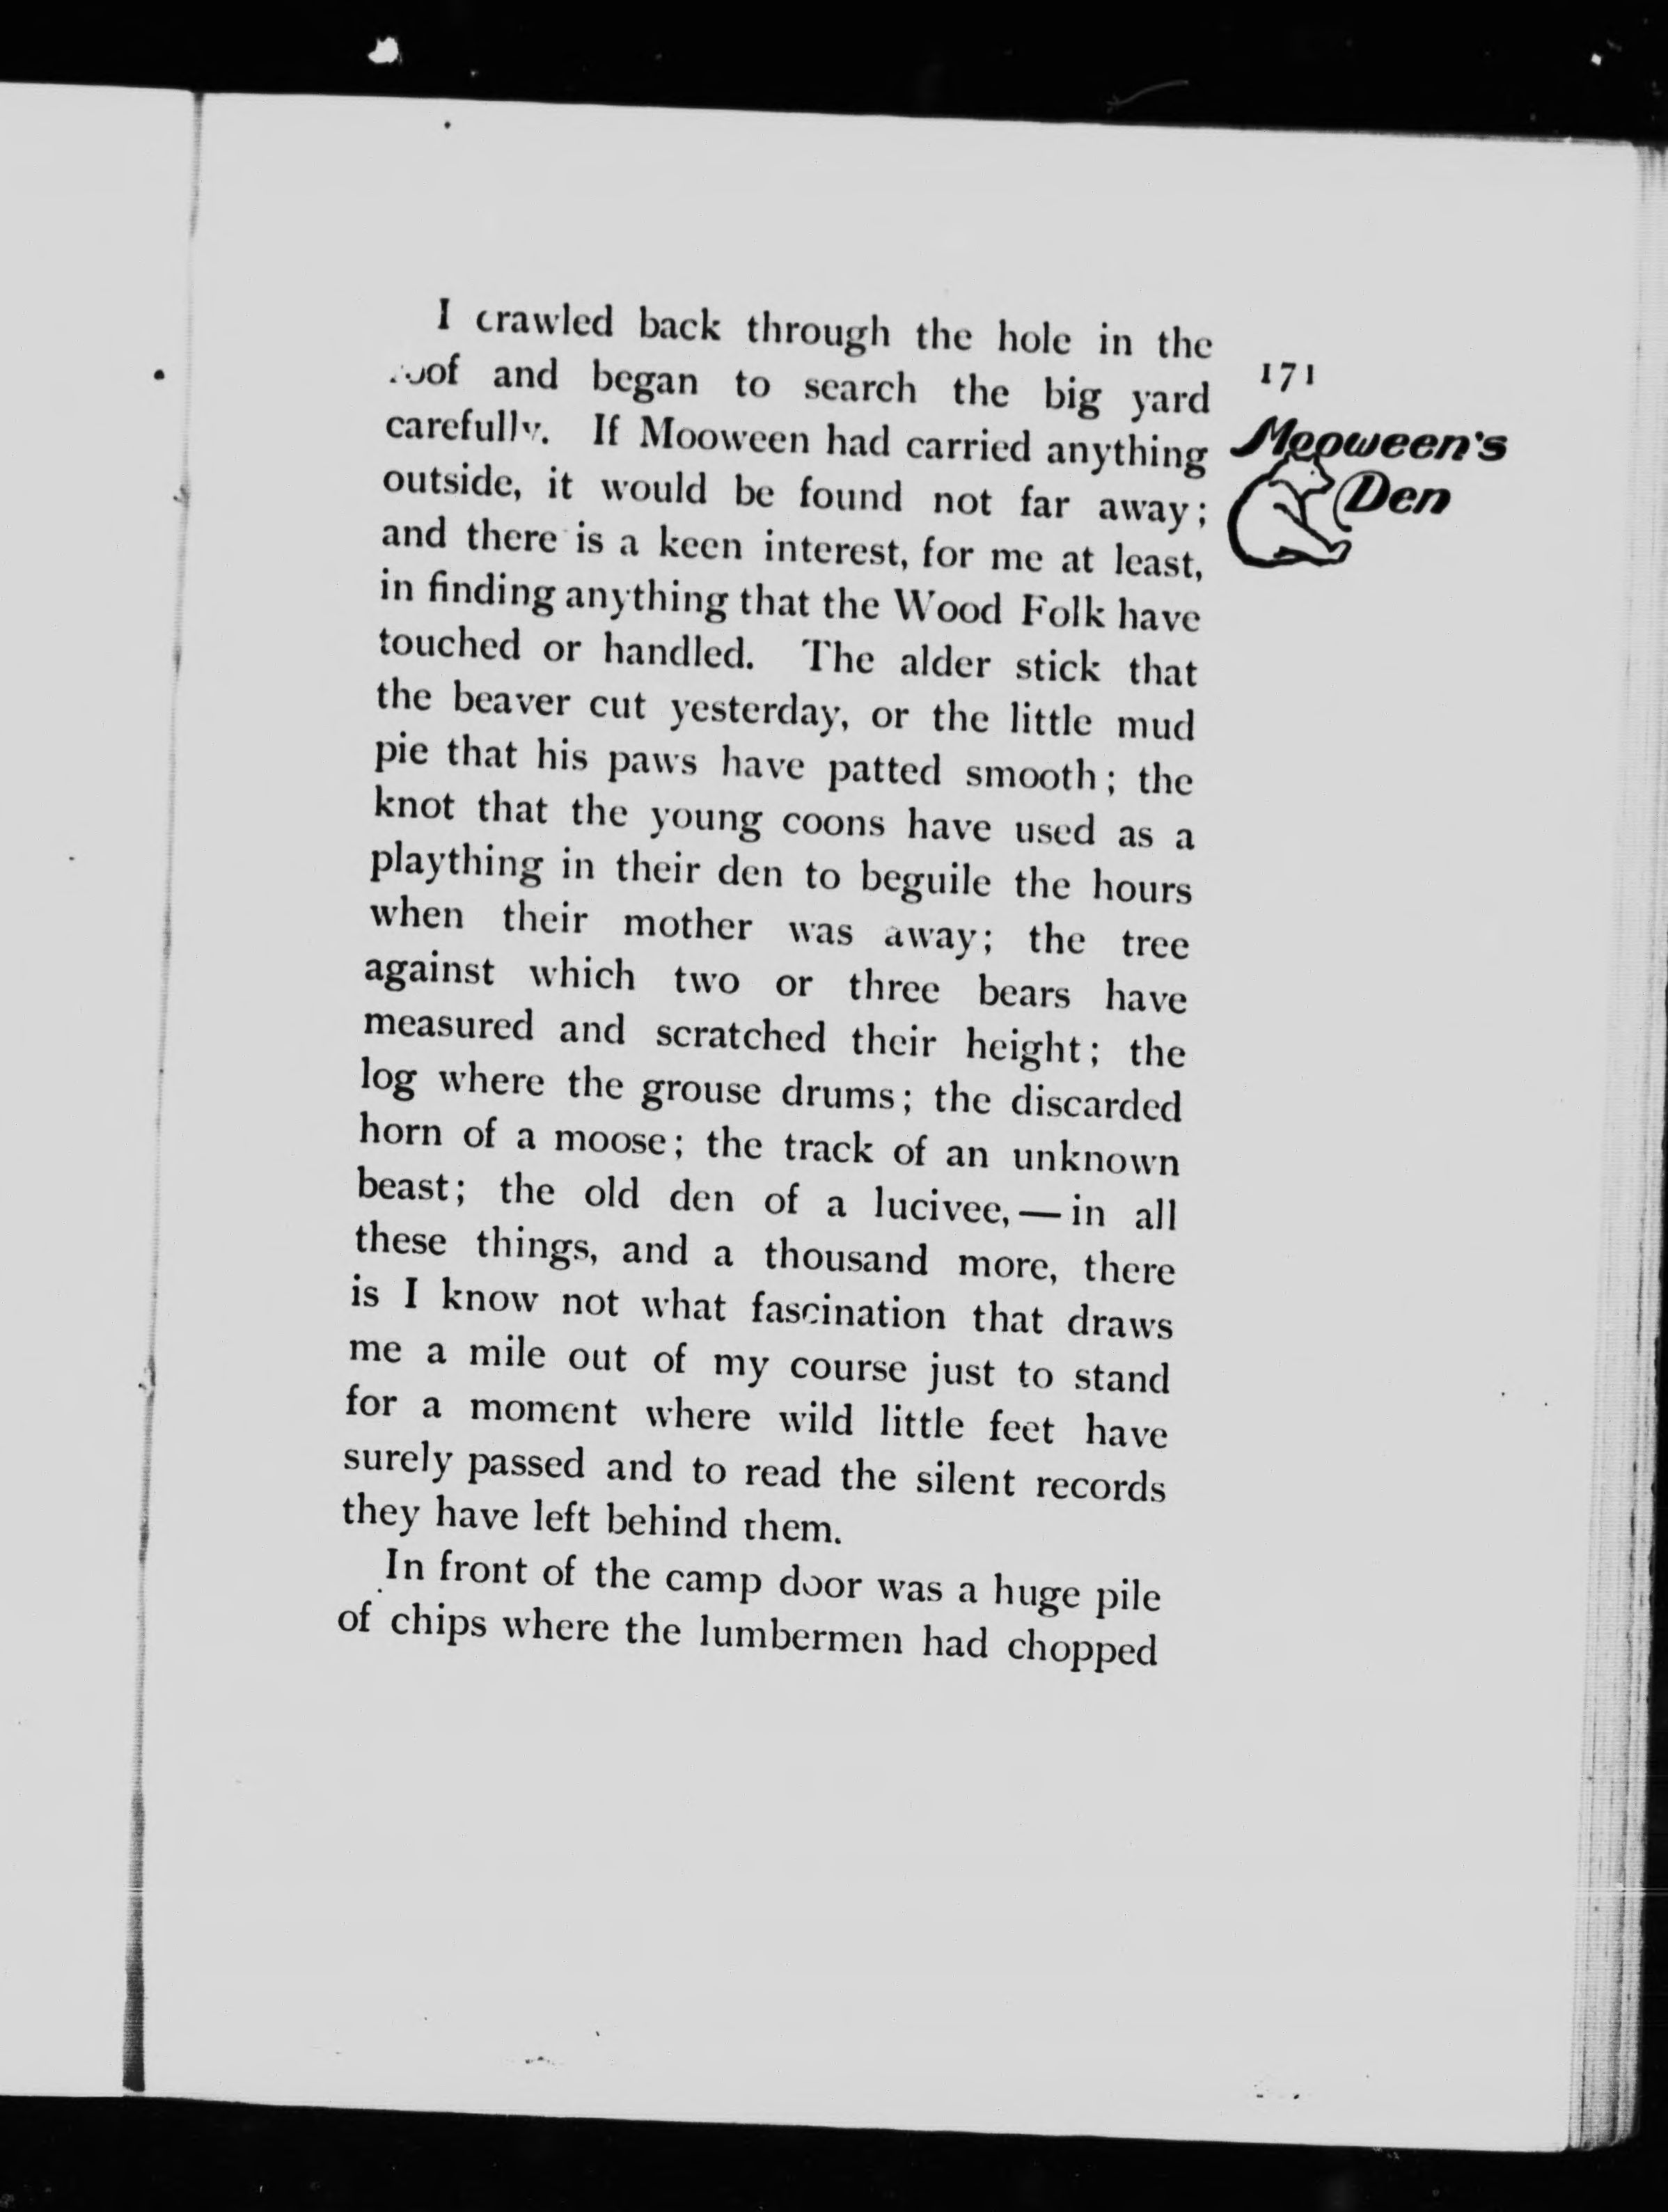 I crawled back through the hole in the
roof and began to search the big yard
carefully. If Mooween had carried anything
outside, it would be found not far away;
and there is a keen interest, for me at least,
in finding anything that the Wood Folk have
touched or handled. The alder stick that
the beaver cut yesterday, or the little mud
pie that his paws have patted smooth; the
knot that the young coons have used as a
plaything in their den to beguile the hours
when their mother was away; the tree
against which two or three bears have
measured and scratched their height; the
log where the grouse drums; the discarded
horn of a moose; the track of an unknown
beast; the old den of a lucivee,—in all
these things, and a thousand more, there
is I know not what fascination that draws
me a mile out of my course just to stand
for a moment where wild little feet have
surely passed and to read the silent records
they have left behind them.
In front of the camp door was a huge pile
of chips where the lumbermen had chopped
171
Mooween's
Den